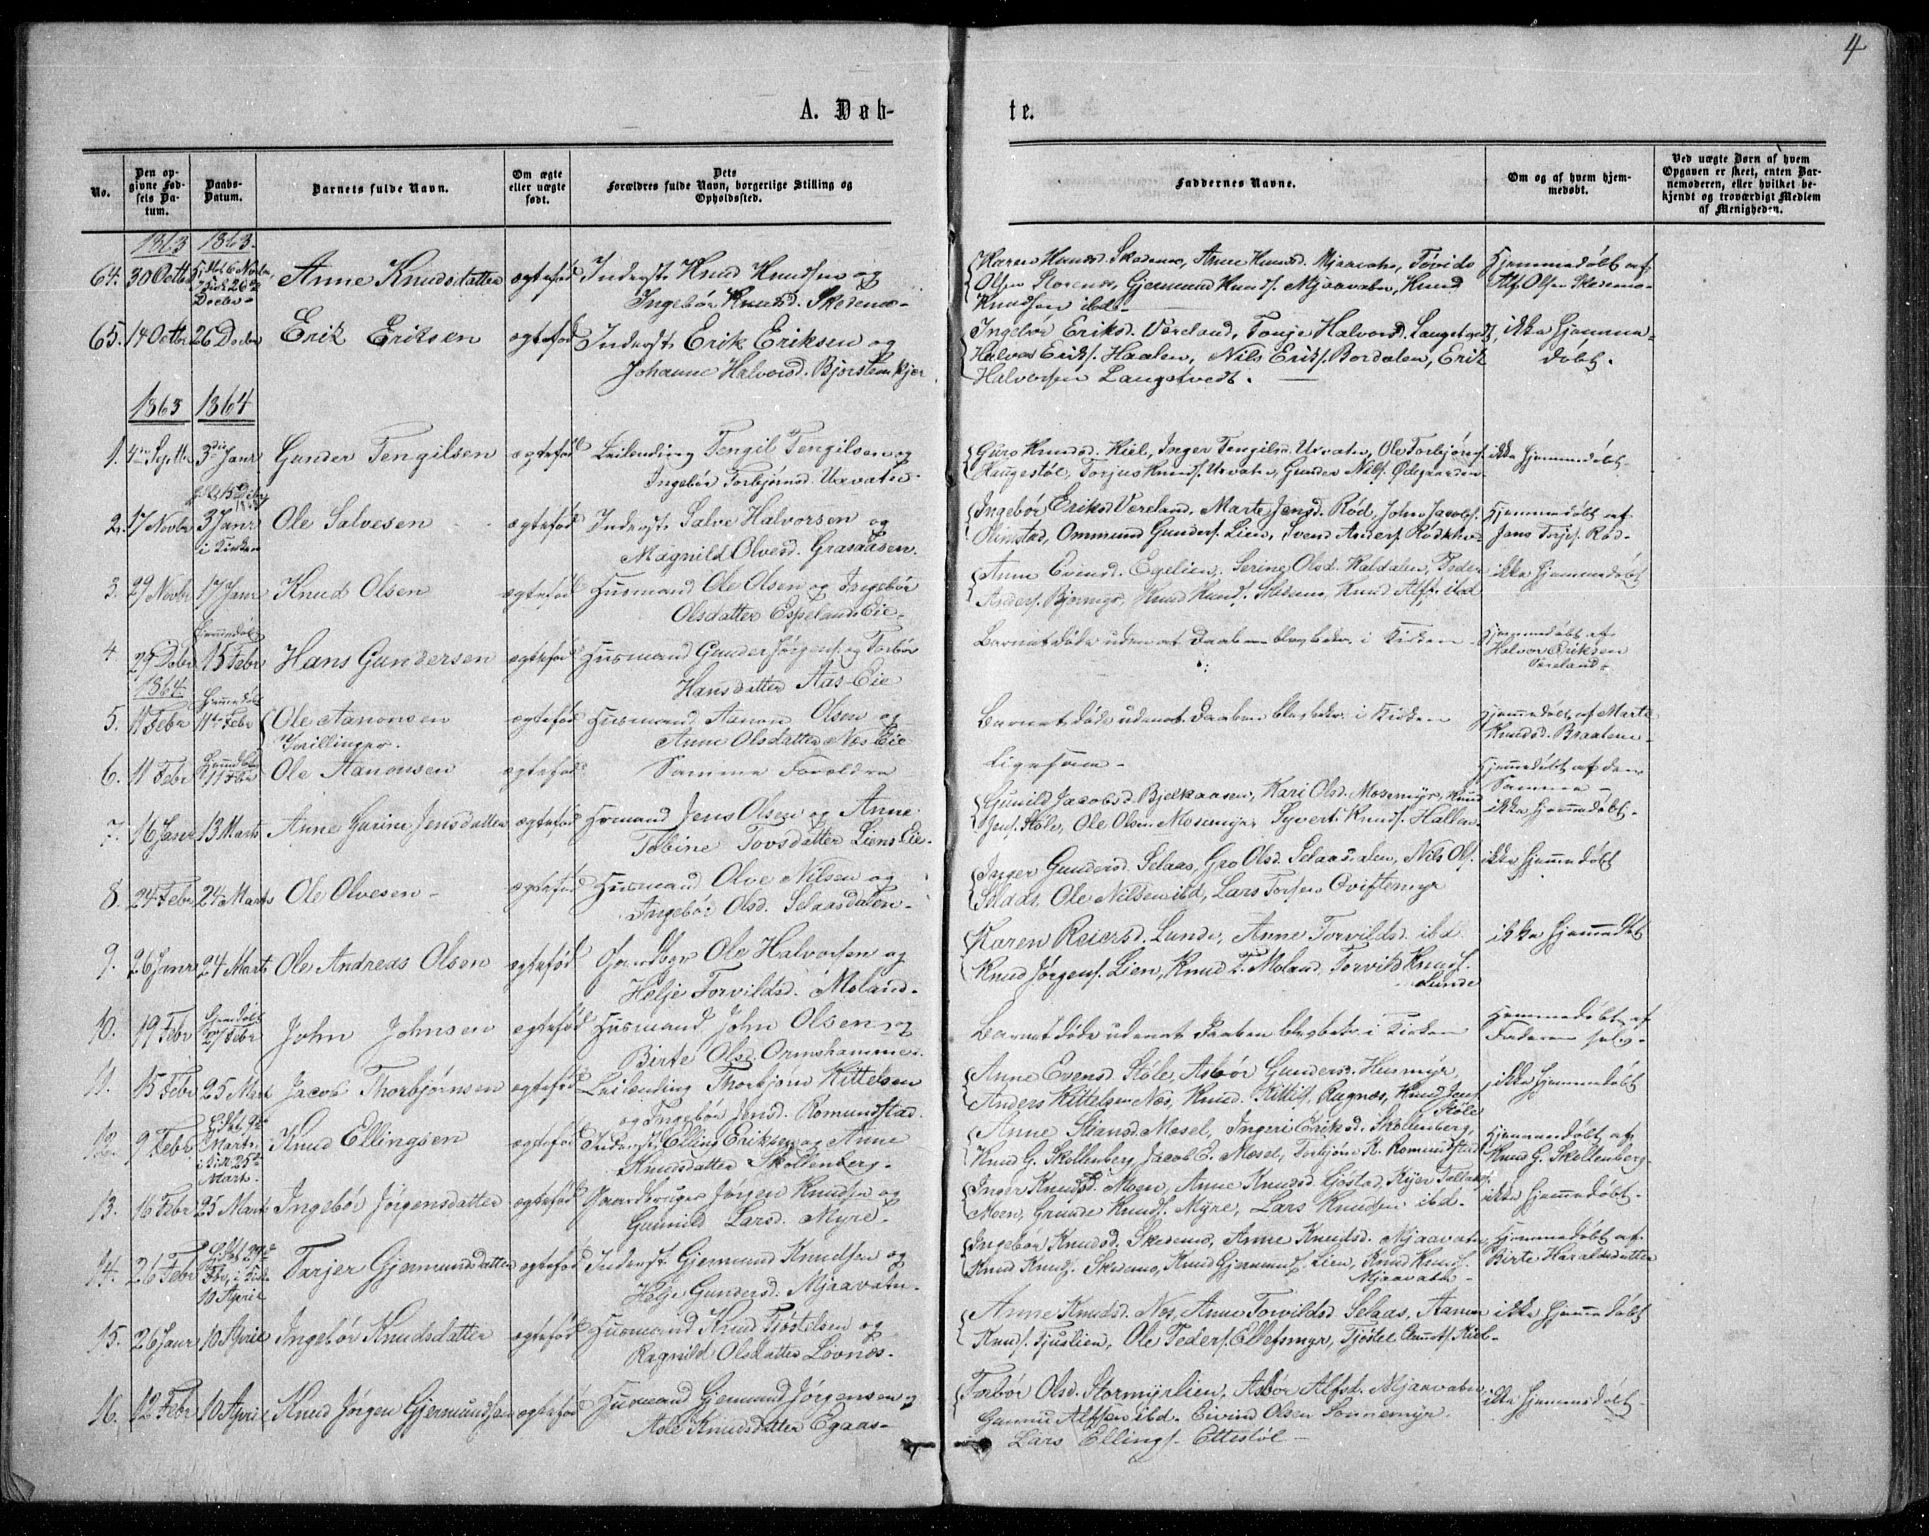 4
A. Døb-
te.
No.
Den op-
givne Fød-
sels Da-
tum.
Daabs-
Datum.
Barnets fulde Navn.
Om ægte
eller uægte
født.
Dets
Forældres fulde Navn, borgerlige Stilling og
Opholdssted.
Faddernes Navne.
Om og af hvem hjem-
medøbt.
Ved uægte Børn af hvem
Opgaven er skeet, enten Bar-
nemoderen, eller hvilket be-
kjendt og troværdigt Medlem
af Menigheden.
1863 1863.
64. 30 Octbr Anne Knudsdatter ægtefød Inderst Knud Knudsen og
Ingebør Knudsd. Skedsmo
Karen Knudsd. Skedsmo, Anne Knudsd. Mjaavatn,
Olsen Gjermund Knuds. Mjaavatn, Knud
Knudsen ibd.
Hjemmedøbt af
Alf Olsen Skedsmo
65. 14 Octbr 26 Decbr Erik Eriksen ægtefød Inderst Erik Eriksen og
Johanne Halvorsd. Bjorstemkjer
Ingebør Eriksd. Vereland, Tonje Halvorsd. Langstvedt,
Halvor Eriks. Haalen, Nils Eriks. Bordalen, Erik
Halvorsen Langstvedt.
ikke hjemme-
døbt.
1863 1864
1. 4 Septbr 3die Janr Gunder Tengilsen ægtefød Leilending Tengil Tengilsen og
Ingebør Torbjørnsd. Urvatn
Guro Knudsd. Kiel, Inger Tengilsd. Urvatn, Ole Torbjørns.
Haugestøl, Torjus Knuds. Urvatn, Gunder Nils. Ødegaarden
ikke hjemmedøbt.
2. 17 Novbr 3 Janr
i Kirken
Ole Salvesen ægtefød Inderst Salve Halvorsen og
Magnild Olvesd. Grasaasen
Ingebør Eriksd. Vereland, Marte Jensd. Rød, John Jacobs.
Olimstad, Ommund Gunders. Lien, Svend Anders. Rødkho
Hjemmedøbt af
Jens Torjes. Rød
3. 29 Novbr 17 Janr Knud Olsen ægtefød Husmand Ole Olsen og Ingebør
Olsdatter Espelands Eie
Anne Evensd. Egelien, Serine Olsd. Kaldalen, Peder
Anders. Bjormyr, Knud Knuds. Skedsmo, Knud Alfs. ibid
ikke hjemmedøbt
4. 29 Decbr 15 Febr Hans Gundersen ægtefød Husmand Gunder Jørgens. og Torbør
Hansdatter Aas Eie
Barnet døde uden at Daaben blev bekr. i Kirken
Hjemmedøbt af
Halvor Eriksen
Vereland
1864
5. 11 Febr 11te Febr Ole Aanonsen ægtefød Husmand Aanon Olsen og
Tvillinger.
Anne Olsdatter Næs Eie
Barnet døde uden at Daaben blev bekr. i Kirken
Hjemmedøbt af Marte
Knudsd. Braatene
6. 11 Febr 11 Febr Ole Aanonsen ægtefød Samme Forældre
Ligesom
Hjemmedøbt af den
Samme
7. 16 Janr 13 Marts Anne Gurine Jensdatter ægtefød Husmand Jens Olsen og Anne
Tobine Tovsdatter Liens Eie
Gunild Jacobsd. Bjelkaasen, Kari Olsd. Mosemyr, Knud
Jens. Støle, Ole Olsen Mosemyr, Syvert Knuds. Hallan
ikke hjemmedøbt
8. 24 Febr 24 Marts Ole Olvesen ægtefød Husmand Olve Nilsen og
Ingebør Olsd. Selaasdalen
Inger Gundersd. Selaas, Gro Olsd. Selaasdalen, Nils Ols.
Selaas, Ole Nilsen ibid, Lars Torsen Qviftemyr
ikke hjemmedøbt
9. 26 Janr 24 Marts Ole Andreas Olsen ægtefød Gaardbr. Ole Halvorsen og
Helje Torvildsd. Moland
Karen Reiersd. Lunde, Anne Torvildsd. ibd
Knud Jørgens. Lien, Knud Moland, Torvild Knuds.
Lunde
ikke hjemmedøbt
10. 19 Febr Febr John Johnsen ægtefød Husmand John Olsen og
Birte Olsd. Ormshammer
Barnet døde uden at Daaben blev bekr. i Kirken
Hjemmedøbt af
Faderen selv
11. 15 Febr 25 Mart Jacob Thorbjørnsen ægtefød Leilending Thorbjørn Kittelsen
og Ingebør Jensd. Romundstad
Anne Evensd. Støle, Asbør Gundersd. Husmyr,
Anders Kittelsen Næs, Knud Kittils. Ragnæs, Knud Jens.
Støle
ikke hjemmedøbt
12. 9 Febr
Marts
i Kirk 25de
Mart.
Knud Ellingsen ægtefød Inderst Elling Eriksen og Anne
Knudsdatter Skollenberg
Anne Stiansd. Mesel, Ingeri Eriksd. Skollenberg,
Knud G. Skollenberg, Jacob E. Mesel, Torbjørn K. Romundstad
Hjemmedøbt af
Knud G. Skollenberg
13. 16 Febr 25 Mart Ingebør Jørgensdatter ægtefød Gaardbruger Jørgen Knudsen og
Gunnild Larsd. Myre
Inger Knudsd. Moen, Anne Knudsd. Gjøstad, Reier
Moen, Grunde Knuds. Myre, Lars Knudsen ibd.
ikke hjemmedøbt
14. 26 Febr
10 April
Tarjer Gjermundsdatter ægtefød Inderst Gjermund Knudsen og
Helje Gundersd. Mjaavatn
Ingebør Knudsd. Skedsmo, Anne Knudsd. Mjaavatn
Knud Knuds. Skedsmo, Knud Gjermunds. Lien, Knud Knuds.
Mjaavatn
Hjemmedøbt af
Birte Haraldsdatter
15. 26 Janr 10 April Ingebør Knudsdatter ægtefød Husmand Knud Tjøstelsen og
Ragnild Olsdatter Løvnæs
Anne Knudsd. Næs, Anne Torvildsd. Selaas, Aanon
Knuds. Ljuslien, Ole Peders. Ellefsmyr, Tjøstel Knuds. Kiel
ikke hjemmedøbt
16. 12 Febr 10 April Knud Jørgen Gjermundsen ægtefød Husmand Gjermund Jørgensen og
Asle Knudsdatter Egaas
Torbør Olsd. Stormyrlien, Asbør Alfsd. Mjaavatn
Gunnu Alfsen ibd. Eivind Olsen Sonnemyr
Lars Ellings. Ettestøl
ikke hjemmedøbt